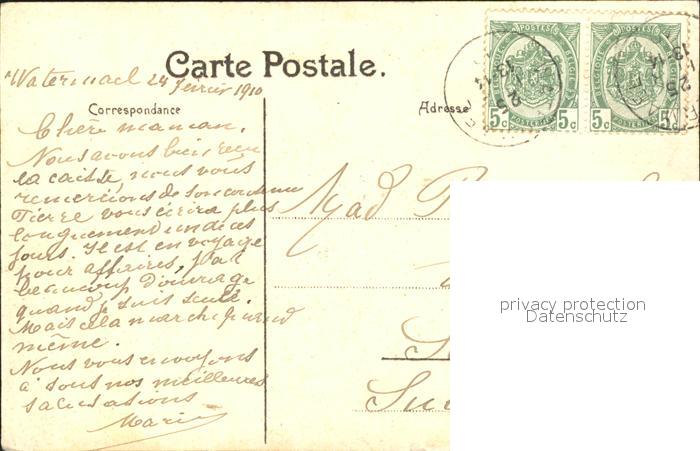 Carte Postale.
Watermael 24 février 1910
Correspondance
Adresse
Chère maman.
Nous avons bien reçu
la caisse nous vous
remercions de son contenu
Pierre vous écrira plus
longuement un de ces
jours. Il est en voyage
pour affaires, j'ai
beaucoup d'ouvrage
quand je suis seule.
Mais cela marche quand
même.
Nous vous envoyons
à tous nos meilleures
salutations
Marie
Mad
POSTES
BELGIQUE
5c 5c
POSTERIJEN
POSTES
BELGIQUE
5c 5c
POSTERIJEN
privacy protection
Datenschutz